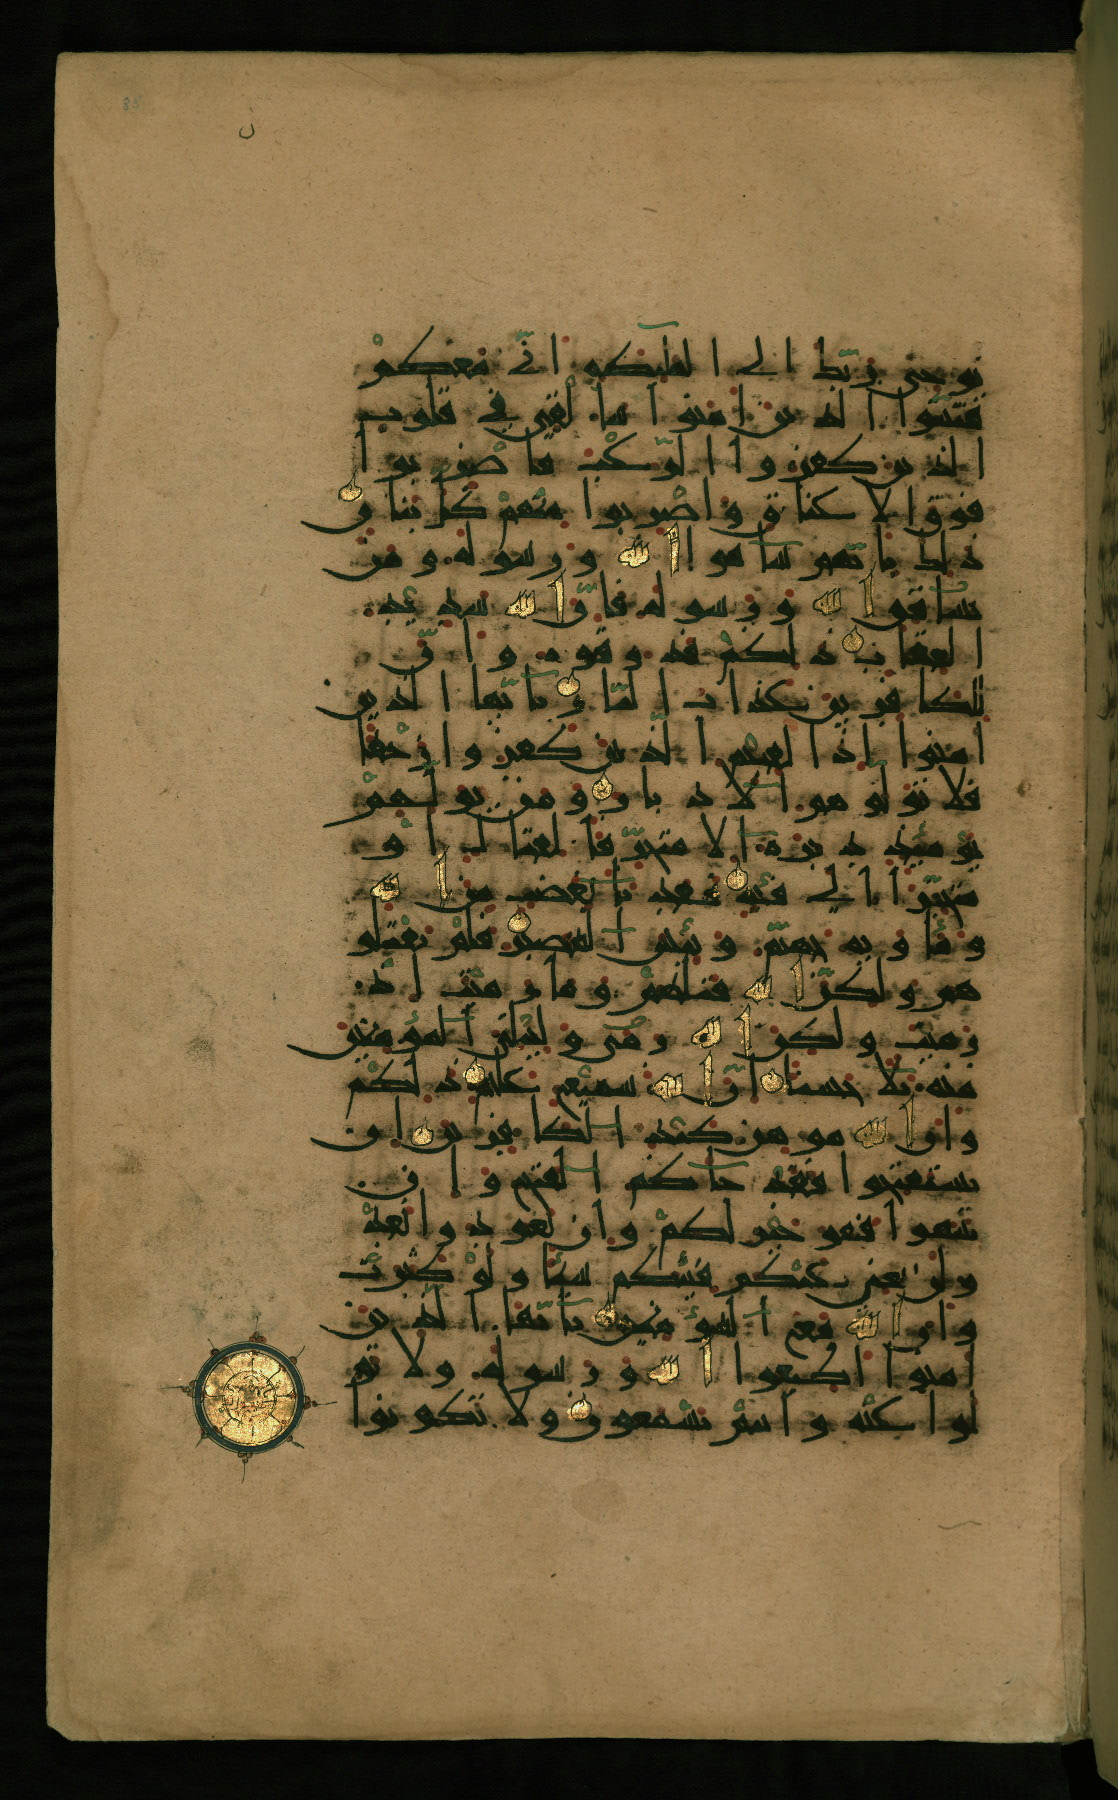 يوحي ربك الى الملئكة اني معكم
فثبتوا الذين امنوا سا لقي في قلوب
الذين كفروا الرعب فاضربوا
فوق الاعناق واضربوا منهم كل بنان
ذلك بانهم شاقوا الله ورسوله ومن
يشاقق الله ورسوله فان الله شديد
العقاب ذلكم فذوقوه وان
للكافرين عذاب النار يا ايها الذين
امنوا اذا لقيتم الذين كفروا زحفا
فلا تولوهم الادبار ومن يولهم
يومئذ دبره الا متحرفا لقتال او
متحيزا الى فئة فقد باء بغضب من الله
وماويه جهنم وبئس المصير فلم تقتلو
هم ولكن الله قتلهم وما رميت اذ
رميت ولكن الله رمى وليبلي المؤمنين
منه بلا حسنا ان الله سميع عليم ذلكم
وان الله موهن كيد الكافرين ان
تستفتحوا فقد جاكم الفتح وان
تنتهوا فهو خير لكم وان تعودوا نعد
ولن تغني عنكم فئتكم شيئا ولو كثرت
وان الله مع المؤمنين يا ايها الذين
امنوا اطيعوا الله ورسوله ولا تو
لوا عنه وانتم تسمعون ولا تكونوا